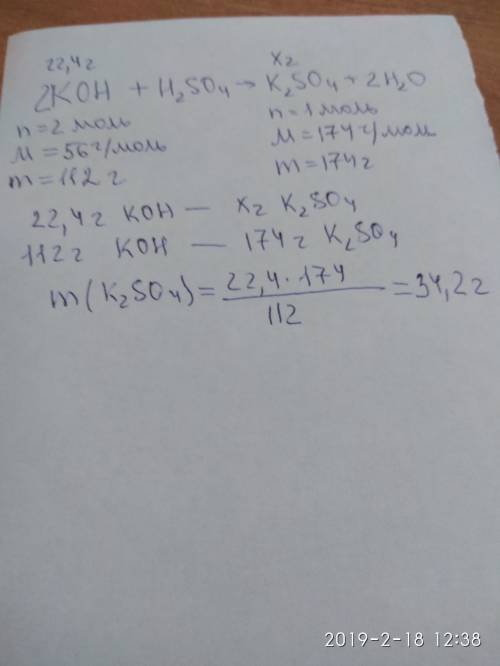 22,4г x г
2KOH + H₂SO₄ → K₂SO₄ + 2H₂O
n = 2 моль n = 1 моль
M = 56 г/моль M = 174 г/моль
m = 112 г m = 174 г
22,4 г KOH — x г K₂SO₄
112 г KOH — 174 г K₂SO₄
m(K₂SO₄) = 22,4 · 174 / 112 = 34,2 г
2019-2-18 12:38